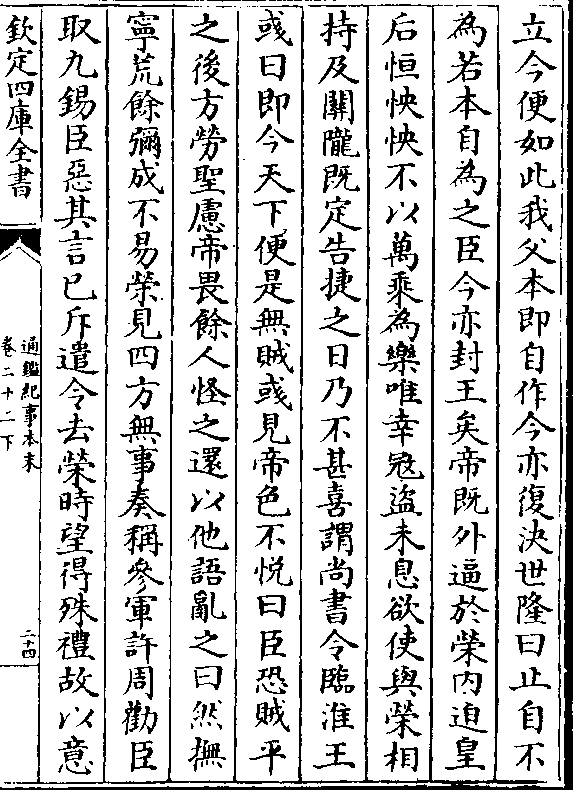 立今便如此我父本即自作今亦復決世隆曰止自不
為若本自為之臣今亦封王矣帝既外逼於榮内迫皇
后恒怏怏不以萬乘為樂唯幸宼盜未息欲使與榮相
持及關隴既定告捷之日乃不甚喜謂尚書令臨淮王
彧曰即今天下便是無賊彧見帝色不悦曰臣恐賊平
之後方勞聖慮帝畏餘人怪之還以他語亂之曰然撫
寧荒餘彌成不易榮見四方無事奏稱參軍許周勸臣
取九錫臣惡其言已斥遣令去榮時望得殊禮故以意
欽定四庫全書
通鑑紀事本末
卷二十二下
二十四